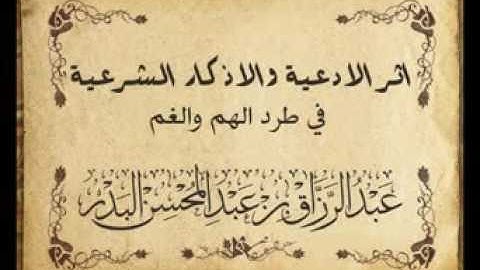 اثر الادعية والاذكار الشرعية
في طرد الهم والغم
عَبْدُ الرَّزَّاقِ بْنِ عَبْدِ الْمُحْسِنِ الْبَدْرِ